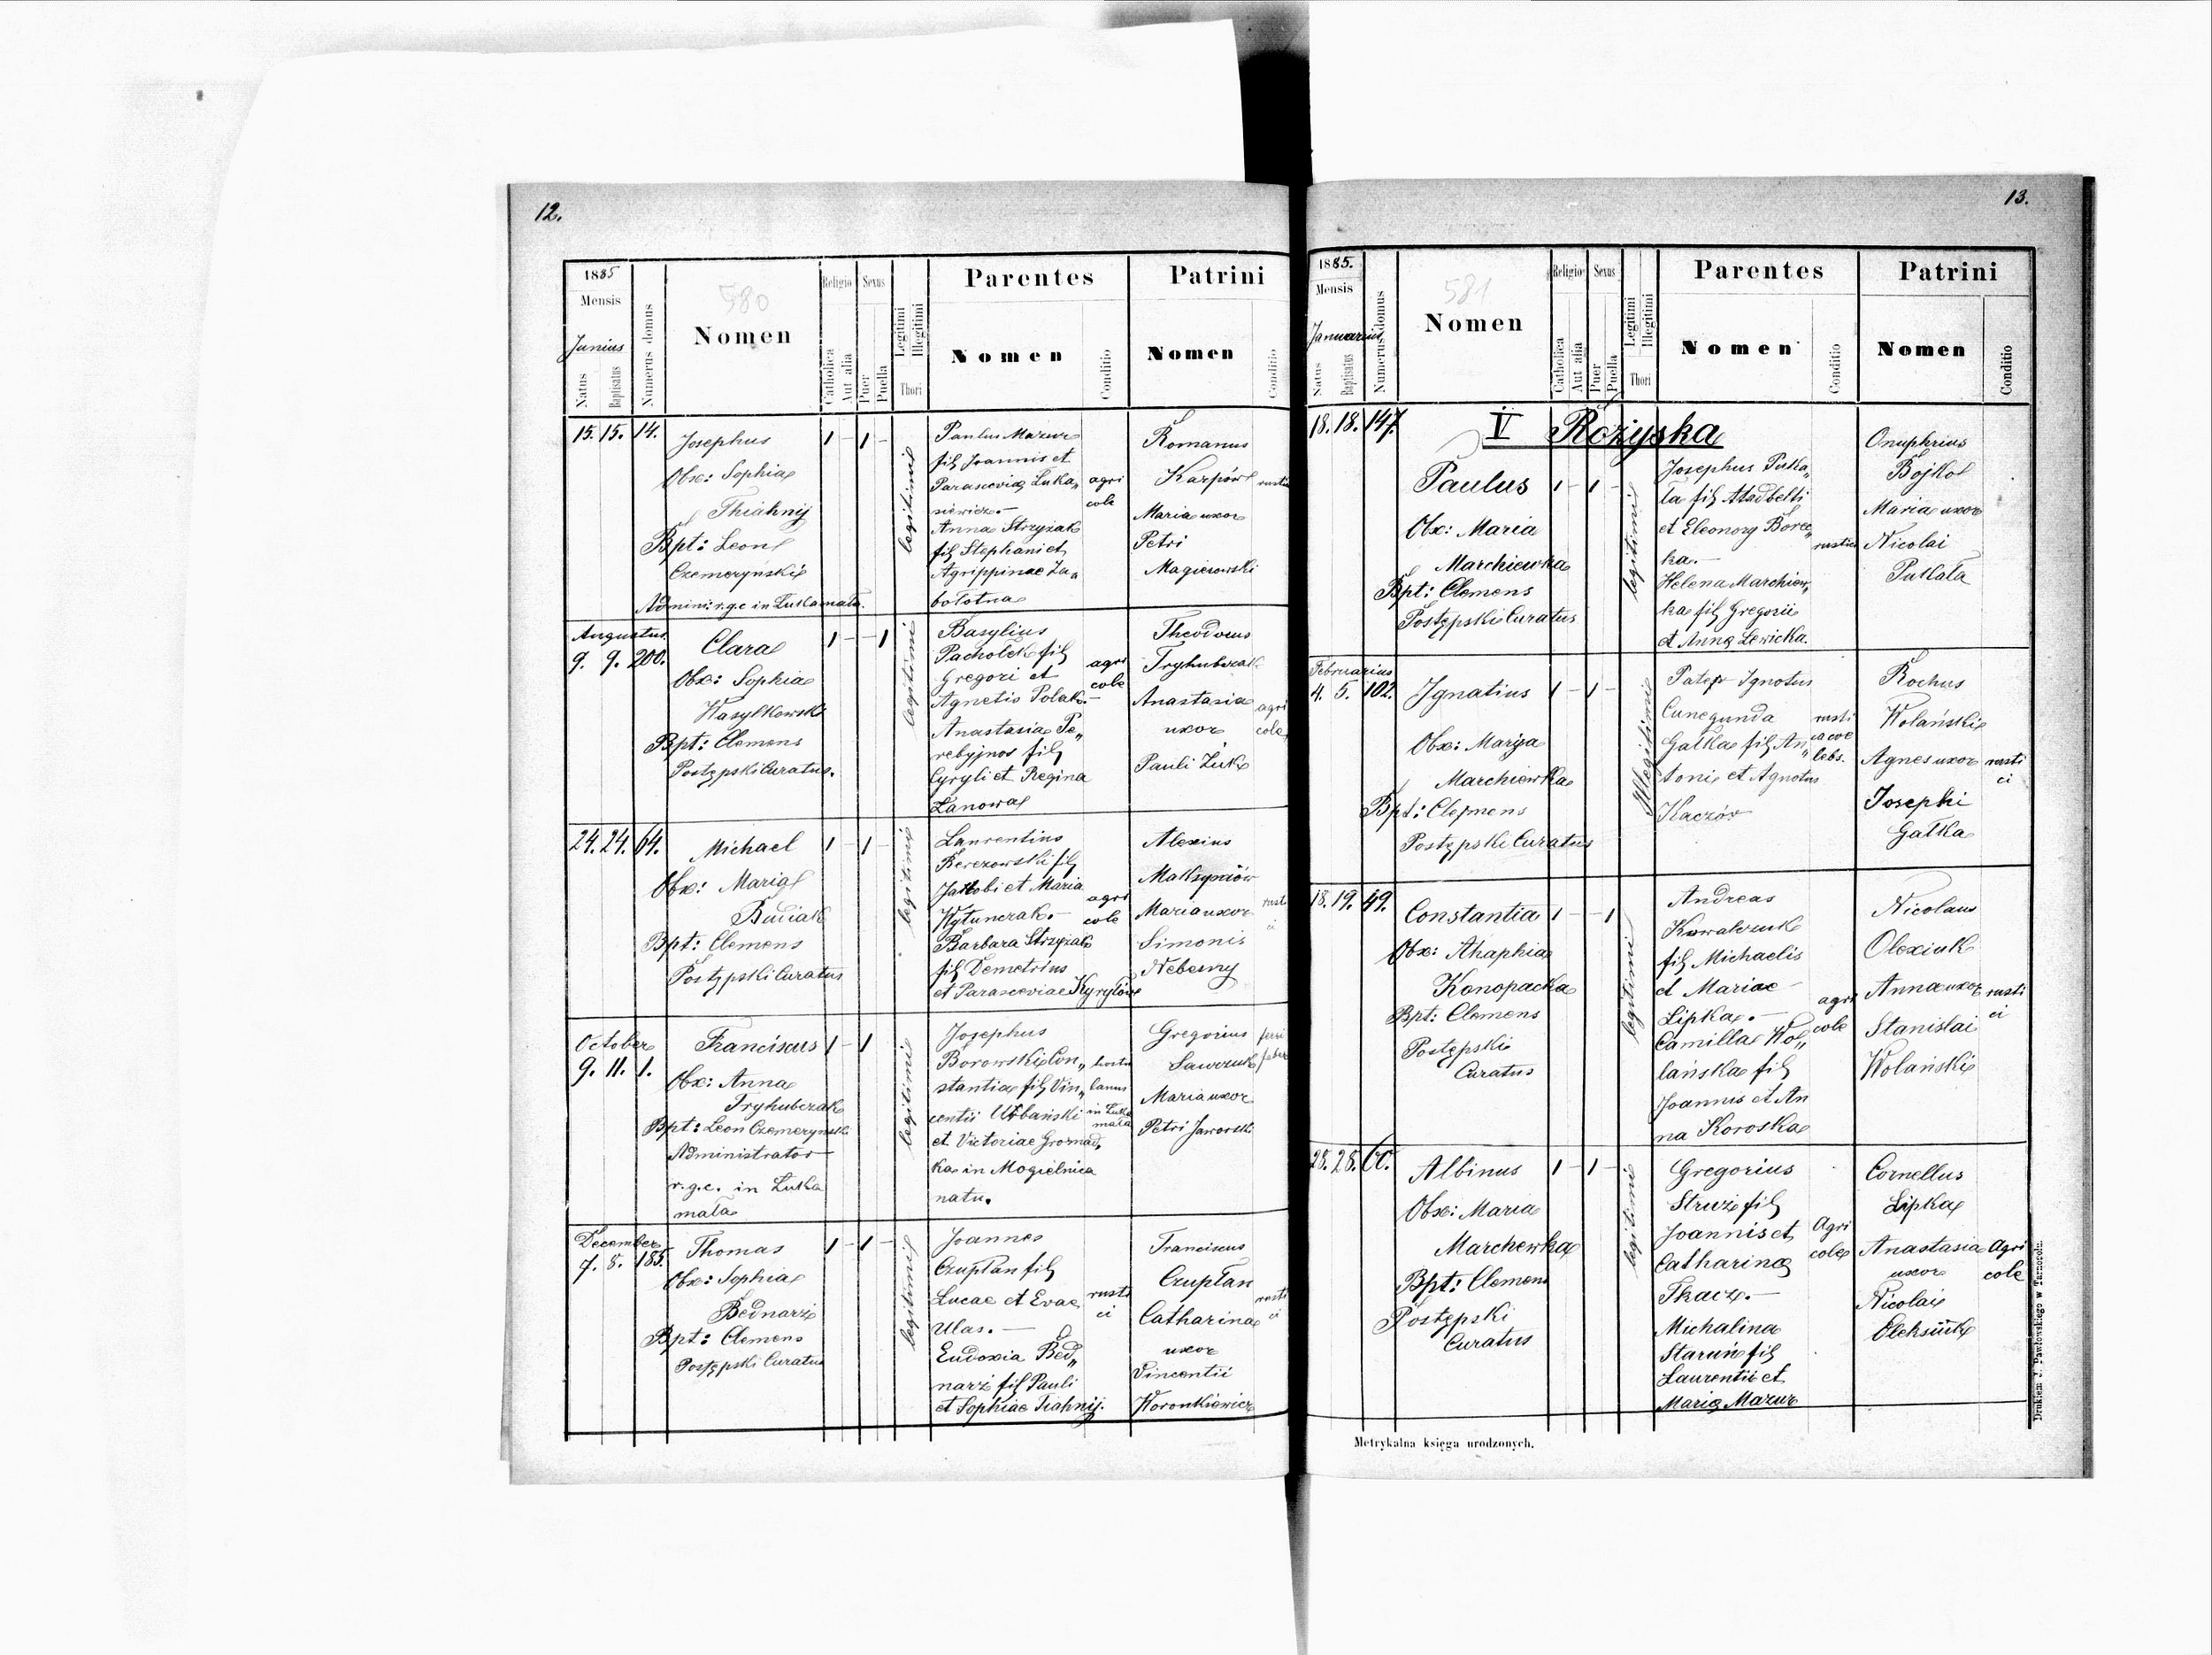 12.
1885
Mensis
Junius
Natus
Baptisatus
Numerus domus
580
Nomen
Religio
Catholica
Aut alia
Sexus
Puer
Puella
Legitimi
Illegitimi
Thori
Parentes
Nomen
Conditio
Patrini
Nomen
Conditio
15. 15. 14.
Josephus
Obx: Sophia
Thiahnij
Bpt: Leon
Czemeryński
Admini: r.g.c in Luka mała.
1 - 1 -
legitimi
Paulus Mazur
fil Joannis et
Parascevia Luka„
siewicz.-
Anna Strzyżak
fil Stephani et
Agrippinae Za„
bołotna
agri
cole
Romanus
Karpów
Maria uxor
Petri
Magierowski
rustici
Augustus
9. 9. 200.
Clara
Obx: Sophia
Wasylkowski
Bpt: Clemens
Postępski Curatus.
1 - - 1
legitimi
Basylius
Pacholek fil
Gregori et
Agnetis Polak.-
Anastasia Pe„
rebyjnos fil
Cyryli et Regina
Łanowa
agri
cole
Theodorus
Tryhubczak
Anastasia
uxor
Pauli Żuk
agri
cole
24. 24. 64.
Michael
Obx: Maria
Baziak
Bpt: Clemens
Postępski Curatus
1 - 1 -
legitimi
Laurentius
Berezowski fil
Jakobi et Maria
Wytunczak.-
Barbara Strzyżak
fil Demetrius
et Parasceviae Kyryłów
agri
cole
Alexius
Maksymów
Maria uxor
Simonis
Nebesny
rusti
ci
October
9. 11. 1.
Franciscus
Obx: Anna
Tryhubczak
Bpt: Leon Czemeryński
Administrator
r.g.c. in Luka
mała
1 - 1
legitimi
Josephus
Borowski Con„
stantia fil Vin„
centii Urbański
et Victoriae Gromad„
ka in Mogielnica
natu.
hortu
lanus
in Luka
mała
Gregorius
Sawczuk
Maria uxor
Petri Jaworski
December
7. 8. 185.
Thomas
Obx: Sophia
Bednarz
Bpt: Clemens
Postępski Curatus
1 - 1 -
legitimi
Joannes
Czupłan fil
Lucae et Evae
Ulas.-
Eudoxia Bed„
narz fil Pauli
et Sophiae Tiahnij.
rusti
ci
Franciscus
Czupłan
Catharina
uxor
Vincentii
Woronkiewicz
rusti
ci
13.
1885.
Mensis
Januarius
Natus
Baptisatus
Numerus domus
581
Nomen
Religio
Catholica
Aut alia
Sexus
Puer
Puella
Legitimi
Illegitimi
Thori
Parentes
Nomen
Conditio
Patrini
Nomen
Conditio
V Rożyska
18. 18. 147.
Paulus
Obx: Maria
Marchiewka
Bpt: Clemens
Postępski Curatus
1 - 1 -
legitimi
Josephus Putka„
ła fil Adalberti
et Eleonory Borec„
ka.-
Helena Marchiew„
ka fil Gregorii
et Anna Lewicka.
rustici
Onuphrius
Bojko
Maria uxor
Nicolai
Putkała
Februarius
4. 5. 102.
Ignatius
Obx: Marya
Marchiewka
Bpt: Clemens
Postępski Curatus
1 - 1 -
Illegitimi
Pater Ignotus
Cunegunda
Gałka fil An„
toni et Agnetus
Kaczór
rusti
ca coe
lebs.
Rochus
Wolański
Agnes uxor
Josephi
Gałka
rusti
ci
18. 19. 49.
Constantia
Obx: Ahaphia
Konopacka
Bpt: Clemens
Postępski
Curatus
1 - - 1
legitimi
Andreas
Kowalczuk
fil Michaelis
et Mariae
Lipka.-
Camilla Wo„
lańska fil
Joannis et An
na Koroska
agri
cole
Nicolaus
Olexiuk
Anna uxor
Stanislai
Wolański
rusti
ci
28. 28. 60.
Albinus
Obx: Maria
Marchewka
Bpt: Clemens
Postępski
Curatus
1 - 1 -
legitimi
Gregorius
Struż fil
Joannis et
Catharina
Tkacz.-
Michalina
Staruń fil
Laurentii et
Maria Mazur
Agri
cole
Cornellus
Lipka
Anastasia
uxor
Nicolai
Oleksiuk
Agri
cole
Metrykalna księga urodzonych.
Drukiem J. Pawłowskiego w Tarnopolu.